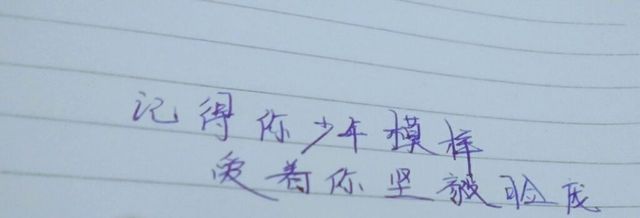 记得你少年模样
爱着你坚毅脸庞